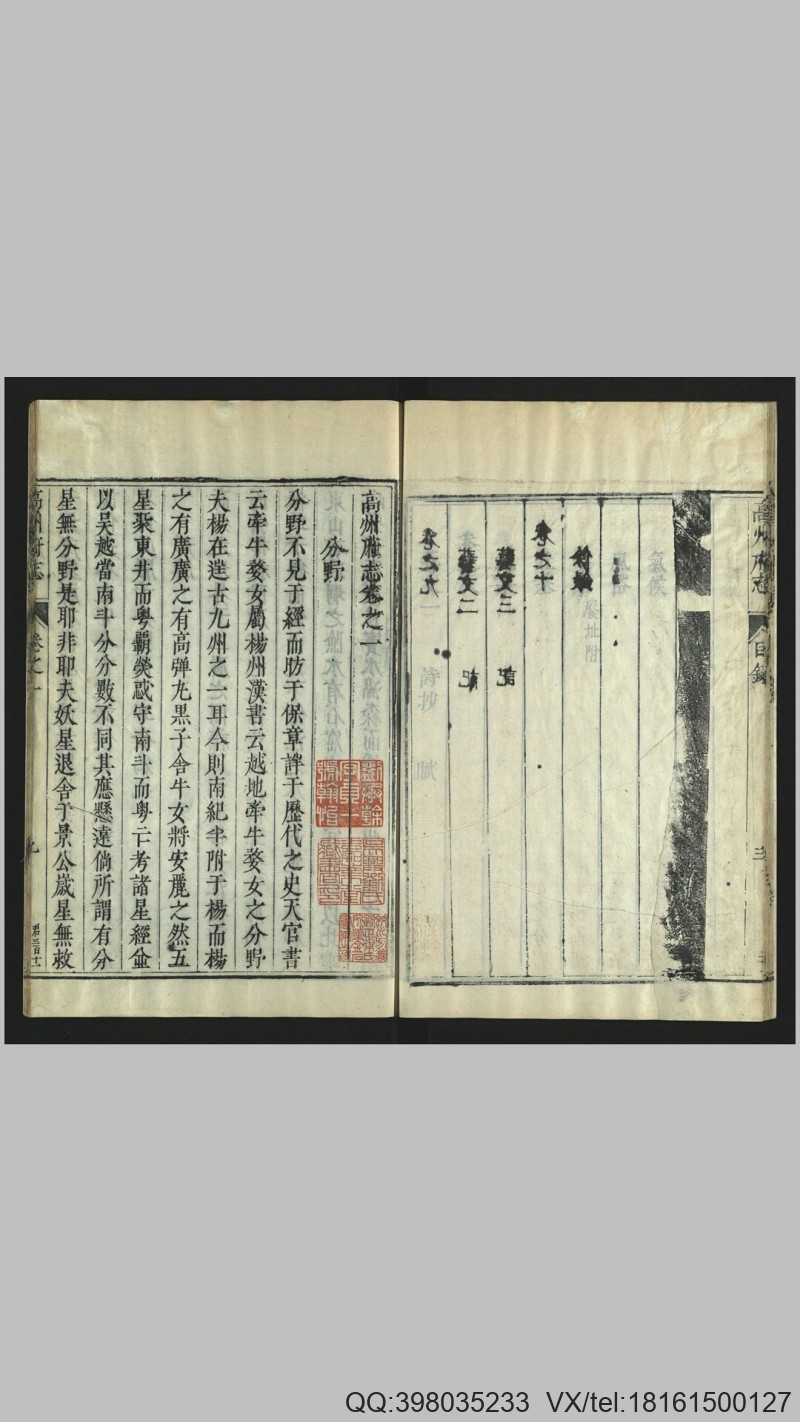 高州府志
目錄
卷之九
藝文二 記
藝文三 記
卷之十
高州府志卷之一
分野
分野不見于經而昉于保章詳于歷代之史天官書
云牽牛婺女屬楊州漢書云越地牽牛婺女之分野
夫楊在逹古九州之一耳今則南紀半附于楊而楊
之有廣廣之有高彈丸黒子舍牛女將安麗之然五
星聚東井而粤霸熒惑守南斗而粤亡考諸星經僉
以吴越當南斗分分數不同其應懸遠倘所謂有分
星無分野是耶非耶夫妖星退舍于景公歳星無救
高州府志
卷之一
QQ:398035233 VX/tel:18161500127